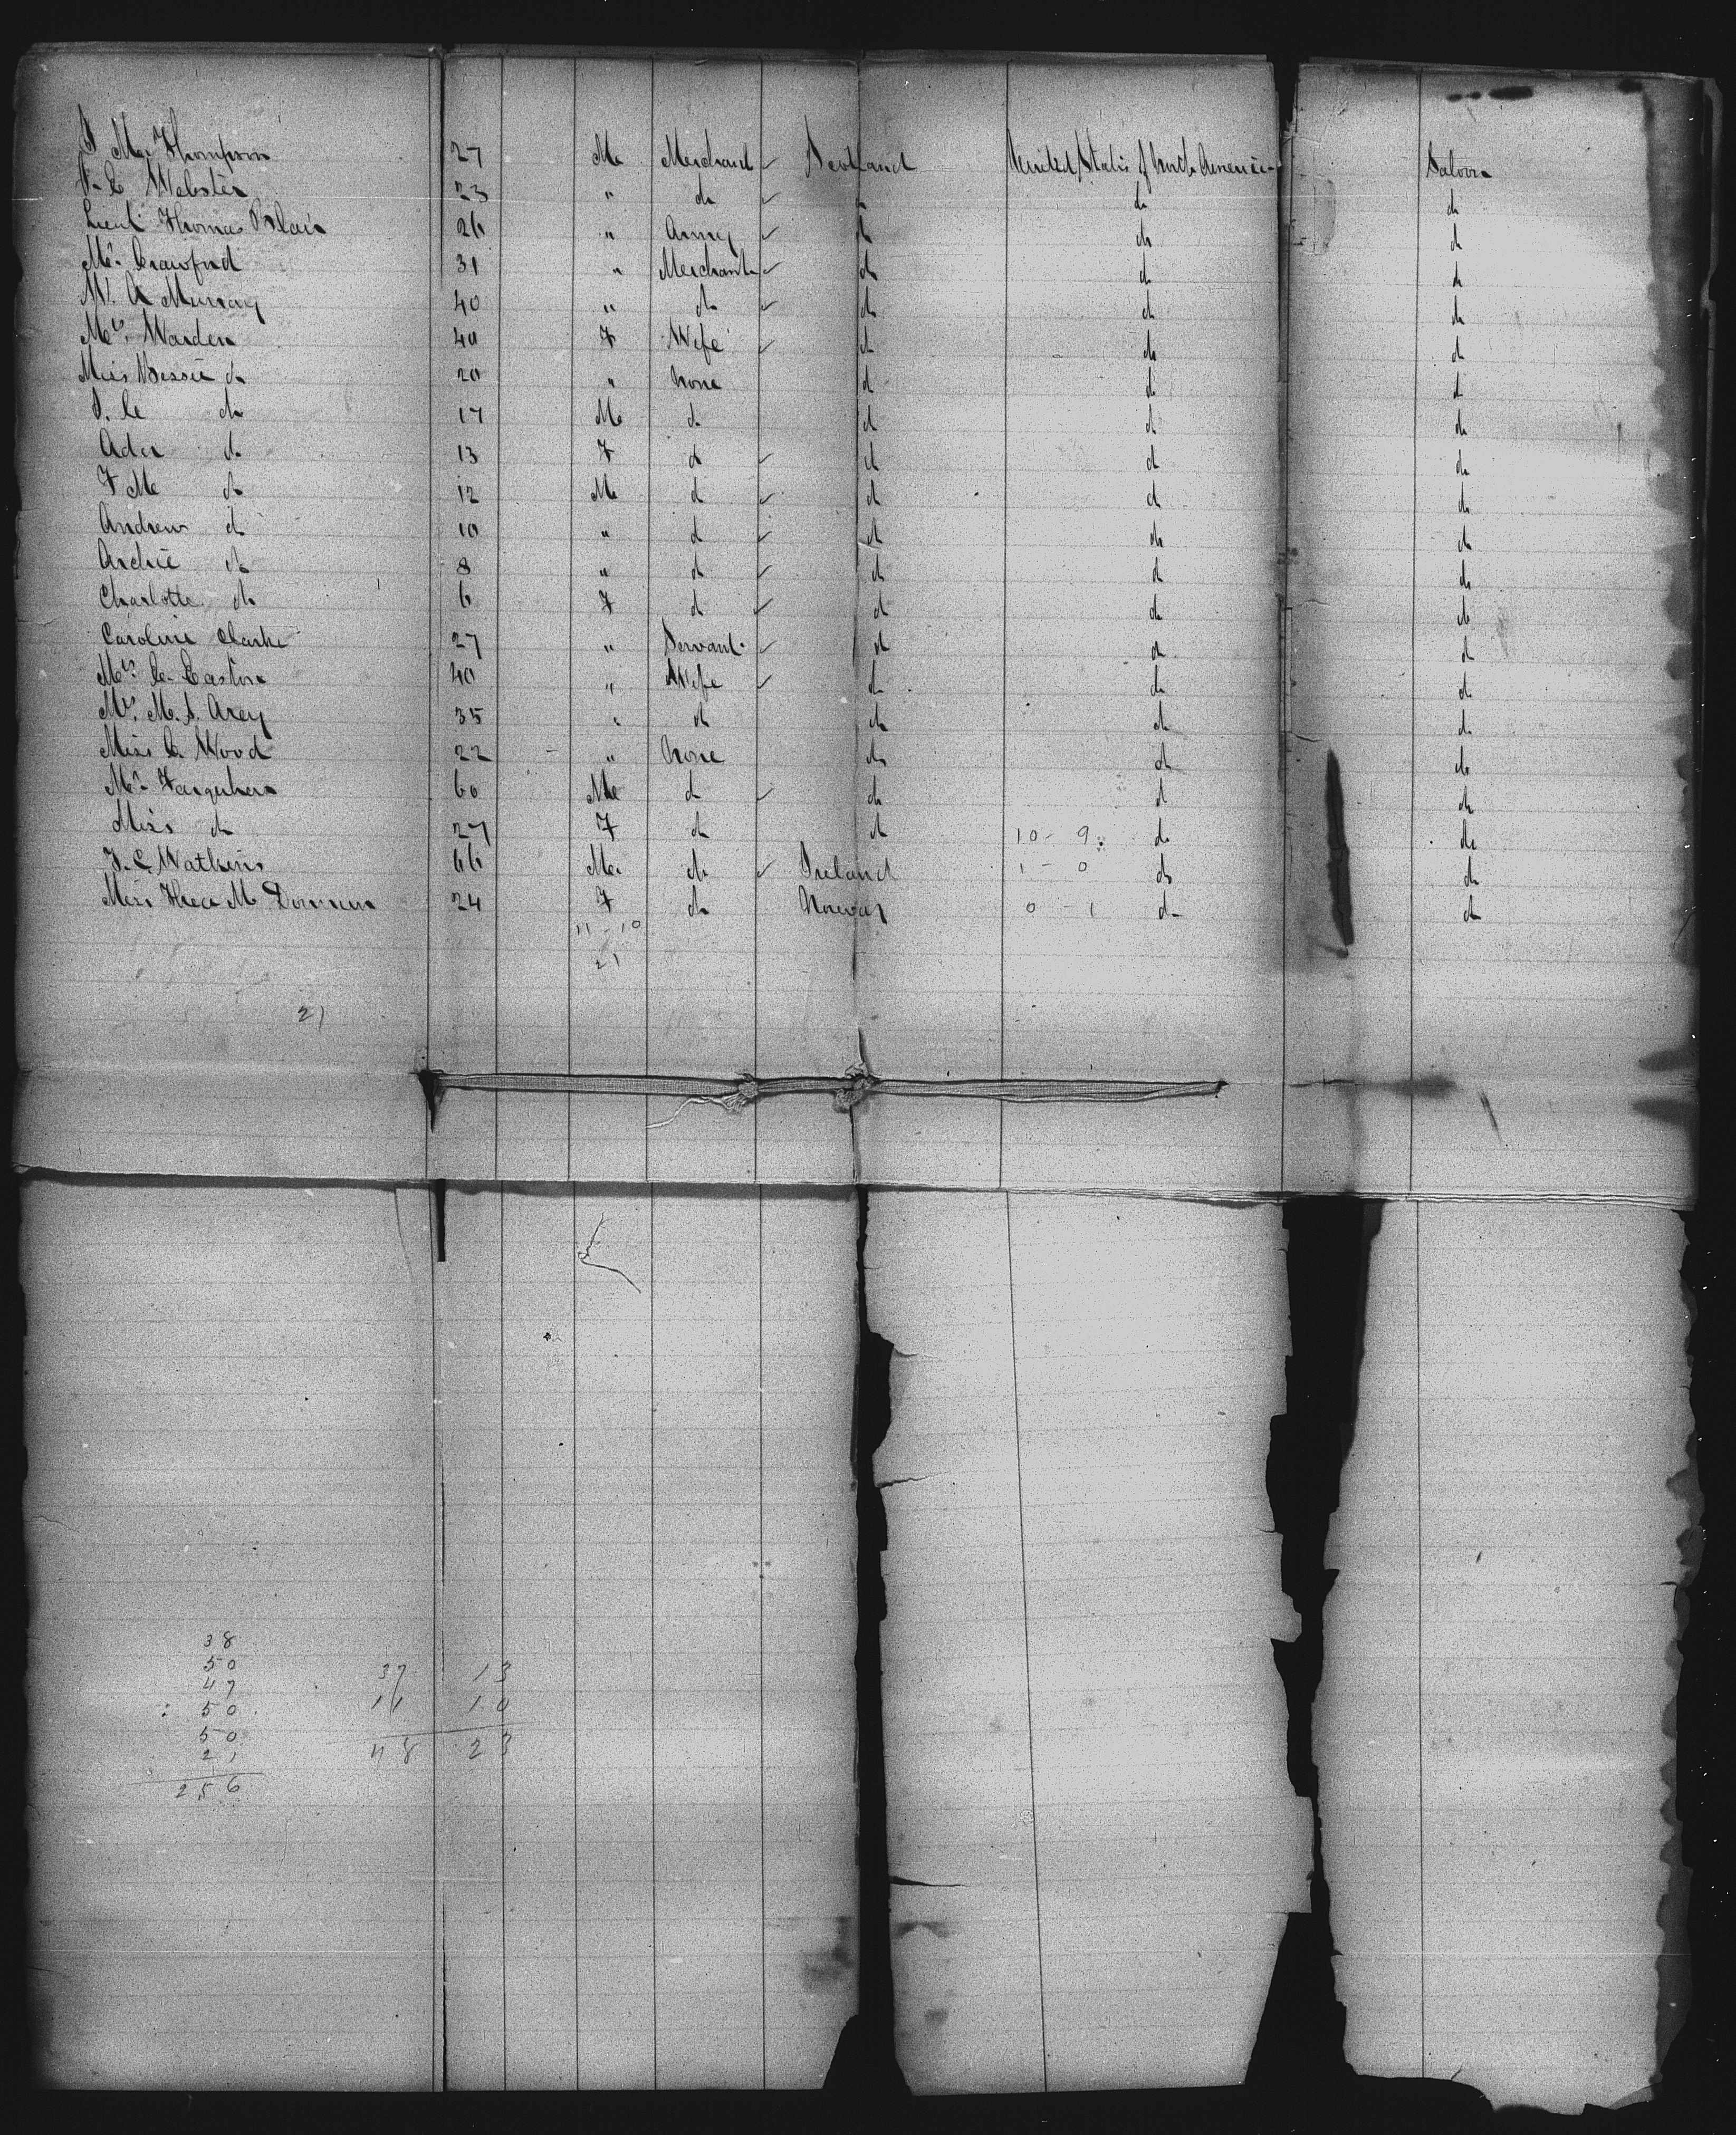 J. M. Thompson 27 M Merchant Scotland United States of North America Saloon
J. C. Webster 23 " do do do do
Lieut Thomas Blair 26 " Army do do do
Mr. Crawford 31 " Merchant do do do
W. A Murray 40 " do do do do
Mrs. Warden 40 F Wife do do do
Miss Bessie do 20 " None do do do
J. C do 17 M do do do do
Ada do 13 F do do do do
F M do 12 M do do do do
Andrew do 10 " do do do do
Archie do 8 " do do do do
Charlotte do 6 F do do do do
Caroline Clarke 27 " Servant do do do
Mrs. C. Easton 40 " Wife do do do
Mrs. M. S. Arey 35 " do do do do
Miss C. Wood 22 " None do do do
Mr. Farquhar 60 M do do do do
Miss do 27 F do do 10 - 9 do do
J. C. Watkins 66 M do Ireland 1 - 0 do do
Miss M 24 F do Norway 0 - 1 do do
11 - 10
21
21
38
50 37 13
47
50 11 10
50
21 48 23
256